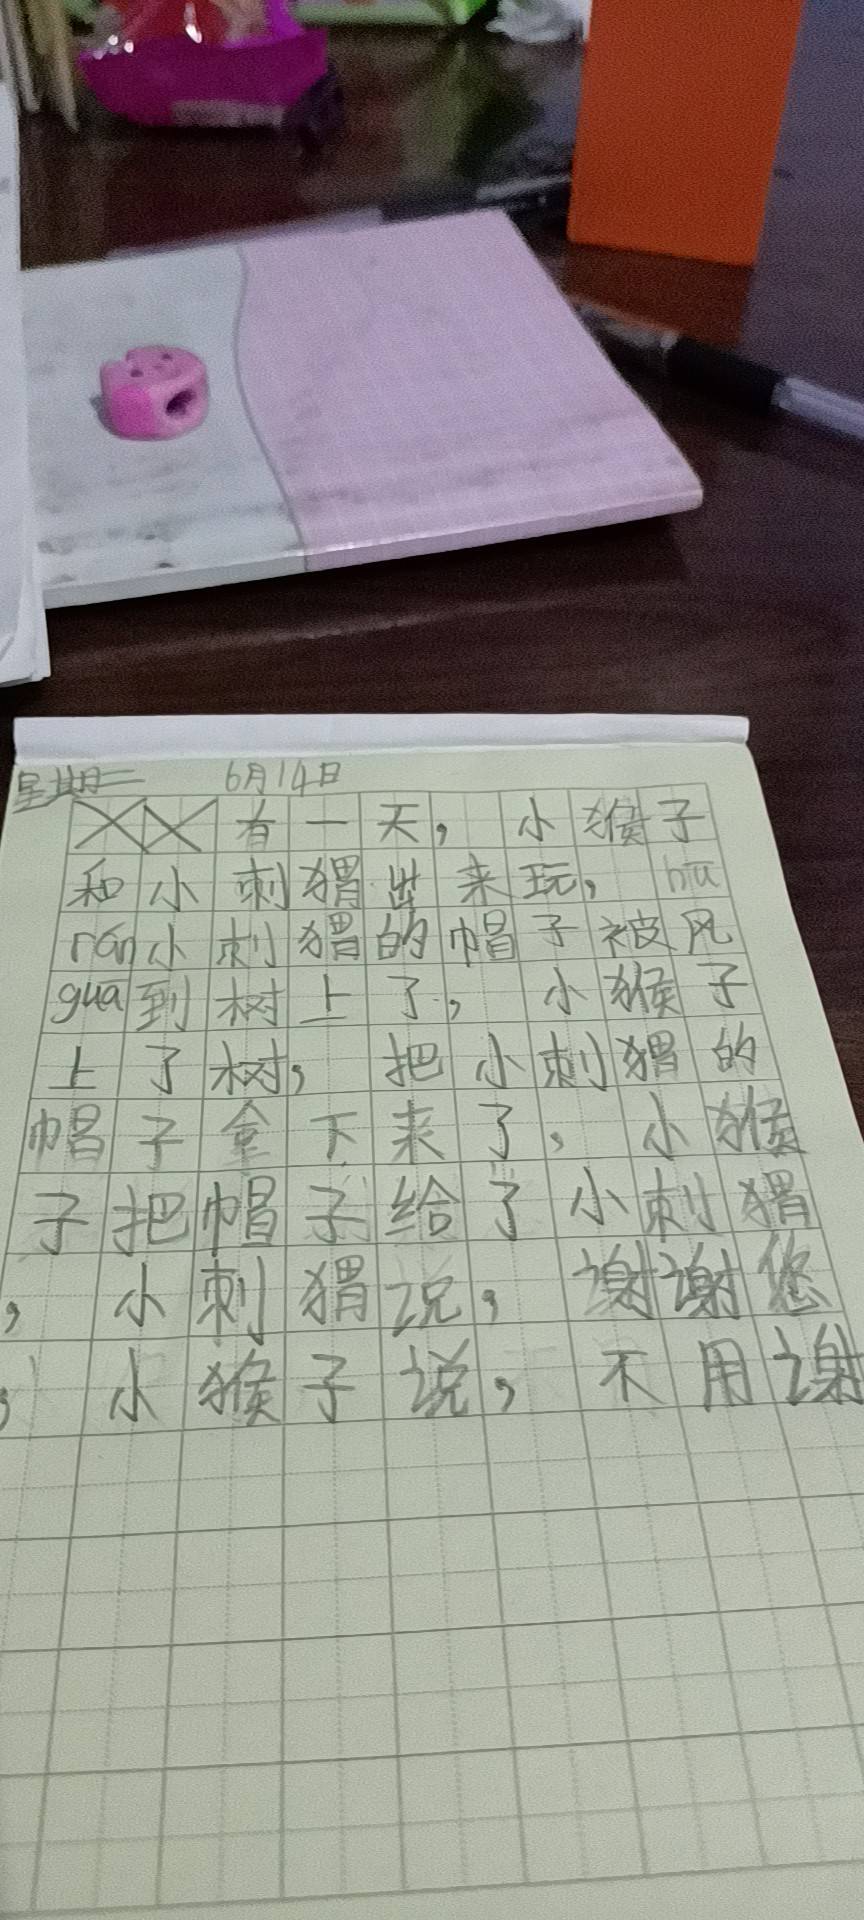 星期二 6月14日
有一天，小猴子
和小刺猬出来玩，hū
rán小刺猬的帽子被风
guā到树上了，小猴子
上了树，把小刺猬的
帽子拿下来了，小猴
子把帽子给了小刺猬
，小刺猬说，谢谢您
，小猴子说，不用谢